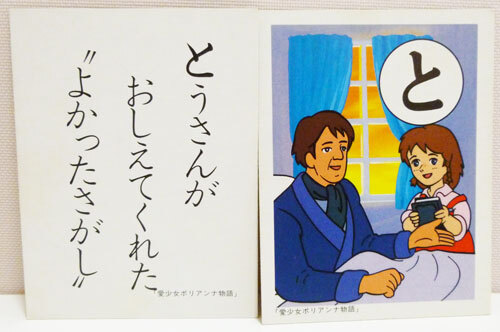 とうさんが
おしえてくれた
〝よかったさがし〟
「愛少女ポリアンナ物語」
と
「愛少女ポリアンナ物語」